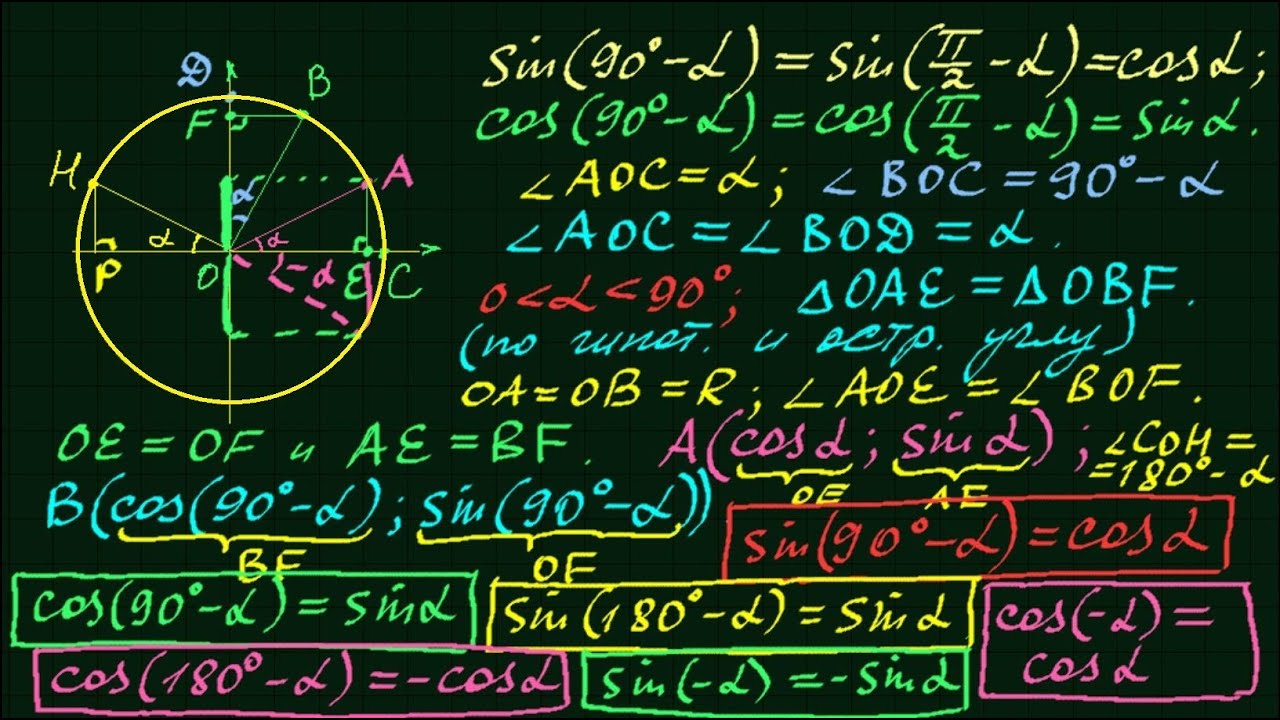 sin(90°-α) = sin(π/2 - α) = cosα;
cos(90°-α) = cos(π/2 - α) = sinα.
∠AOC = α; ∠BOC = 90° - α
∠AOC = ∠BOD = α.
0 < α < 90°; ΔOAE = ΔOBF.
(по гипот. и остр. углу)
OA = OB = R; ∠AOE = ∠BOF.
OE = OF и AE = BF.
A(cosα; sinα); ∠COH =
= 180° - α
OE AE
B(cos(90°-α); sin(90°-α))
BF OF
sin(90°-α) = cosα
cos(90°-α) = sinα
sin(180°-α) = sinα
cos(-α) =
cosα
cos(180°-α) = -cosα
sin(-α) = -sinα
D
B
F
H
A
α
α
α
P
O
-α
E
C